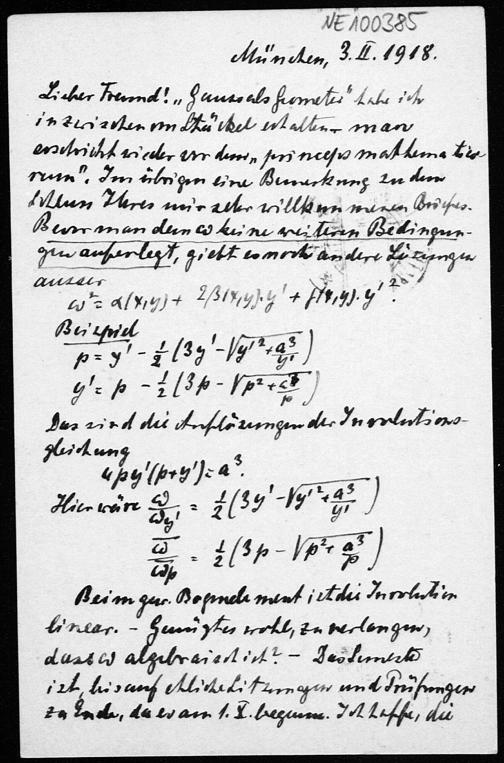 NE100385
München, 3. II. 1918.
Lieber Freund! „Gauss als Geometer" habe ich
inzwischen von Stäckel erhalten – man
erschrickt wieder vor dem „princeps mathematico-
rum". Im übrigen eine Bemerkung zu dem
Schluss Ihres mir sehr willkommenen Briefes.
Bevor man dem ω keine weiteren Bedingun-
gen auferlegt, giebt es noch andere Lösungen
ausser
ω² = α(x,y) + 2β(x,y)·y' + γ(x,y)·y'².
Beispiel
p = y' - 1/2 (3y' - √(y'² + a³/y'))
y' = p - 1/2 (3p - √(p² + a³/p))
Das sind die Auflösungen der Involutions-
gleichung
4py'(p+y') = a³.
Hier wäre ω/ω_y' = 1/2 (3y' - √(y'² + a³/y'))
ω̄/ω̄_p = 1/2 (3p - √(p² + a³/p))
Beim gew. Bogenelement ist die Involution
linear. – Genügt es wohl, zu verlangen,
dass ω algebraisch ist? – Das Semester
ist, bis auf etliche Sitzungen und Prüfungen
zu Ende, da es am 1. X. begann. Ich hoffe, die